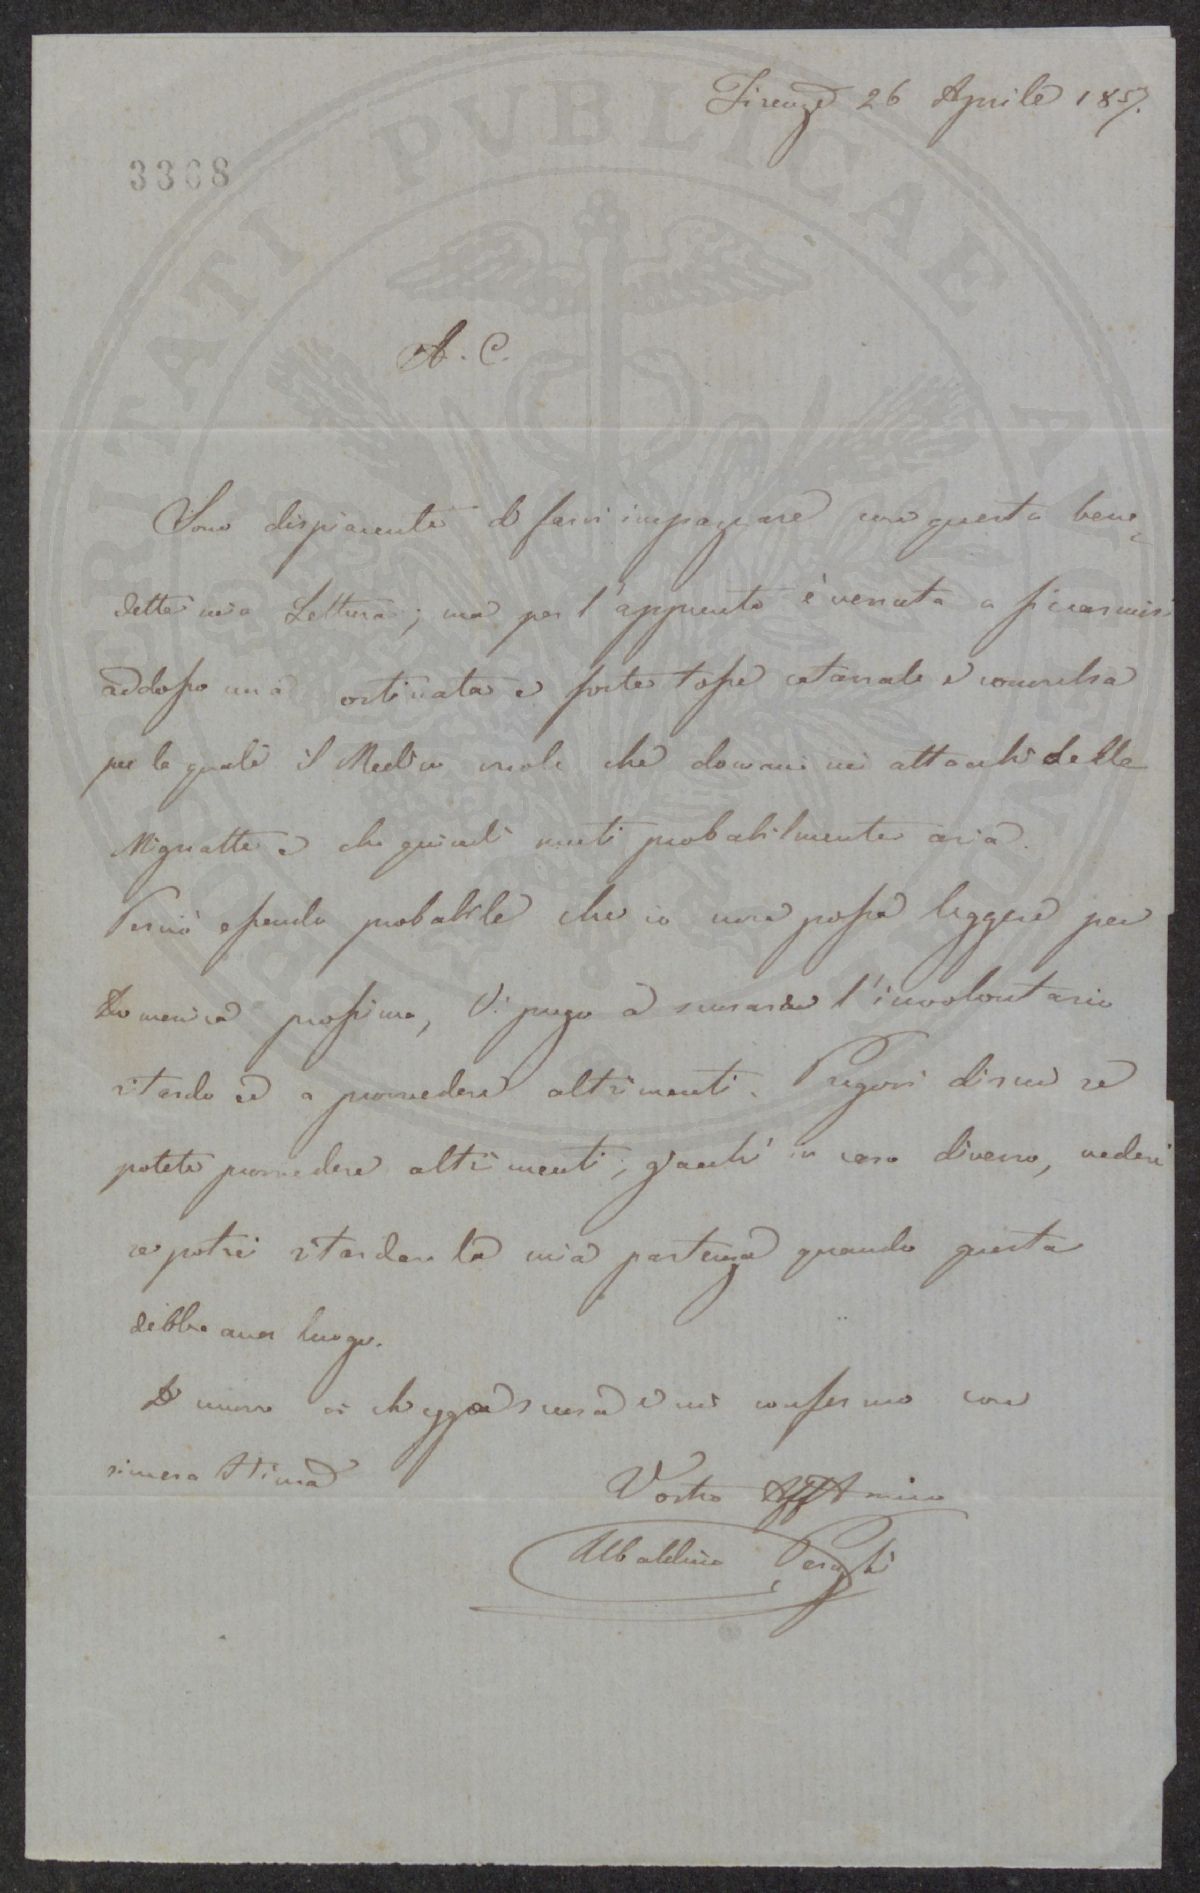 Firenze 26 Aprile 1857.
3368
A. C.
Sono dispiacente di farvi impazzare con questa bene=
detta mia Lettura; ma per l'appunto è venuta a ficcarmisi
addosso una ostinata e forte tosse catarrale e convulsa
per la quale il Medico vuole che domani mi attacchi delle
Mignatte e che quindi muti probabilmente aria.
Perciò essendo probabile che io non possa leggere per
Domenica prossima, Vi prego a scusare l'involontario
ritardo ed a provvedere altrimenti. Pregovi dirmi se
potete provvedere altrimenti, giacchè in caso diverso, vedrei
se potrei ritardare la mia partenza quando questa
debba aver luogo.
Di nuovo vi chieggo scusa e mi confermo con
sincera stima
Vostro Aff Amico
Ubaldino Peruzzi
PVBLICAE